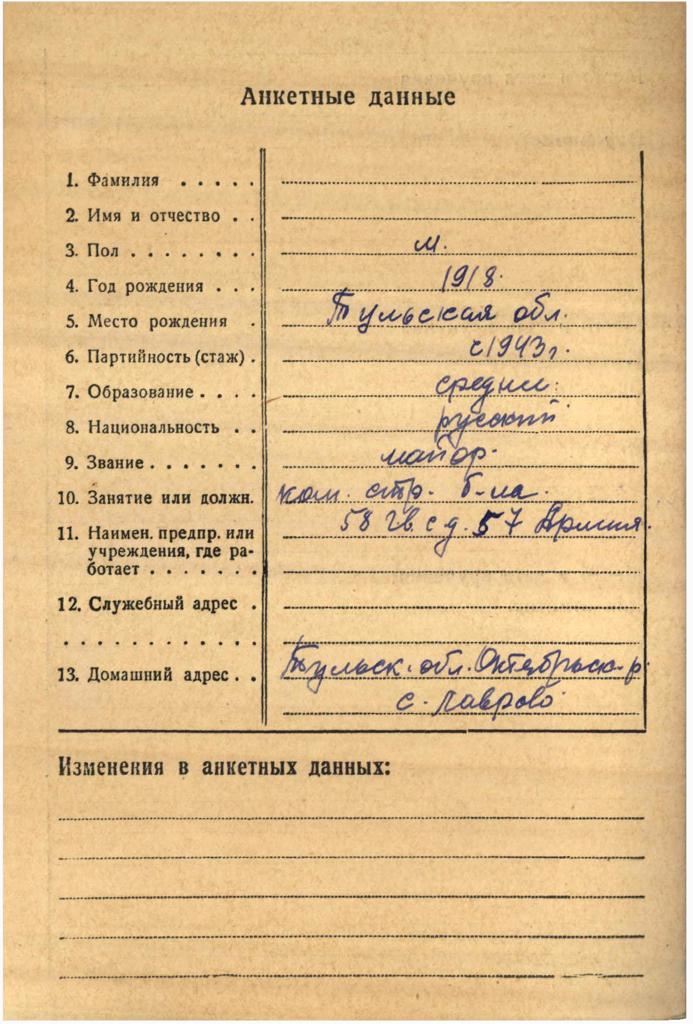 Анкетные данные
1. Фамилия . . . . .
2. Имя и отчество . .
3. Пол . . . . . . . . м.
4. Год рождения . . . 1918.
5. Место рождения . Тульская обл.
6. Партийность (стаж) . с 1943 г.
7. Образование . . . . средн.
8. Национальность . . русский
9. Звание . . . . . . . майор.
10. Занятие или должн. ком. стр. б-на.
11. Наимен. предпр. или 58 гв с д. 57 Армия.
учреждения, где ра-
ботает . . . . . . .
12. Служебный адрес .
. . . . . . . . . . . .
13. Домашний адрес . . Тульск. обл. Октябрьск. р.
с. Лаврово
Изменения в анкетных данных: